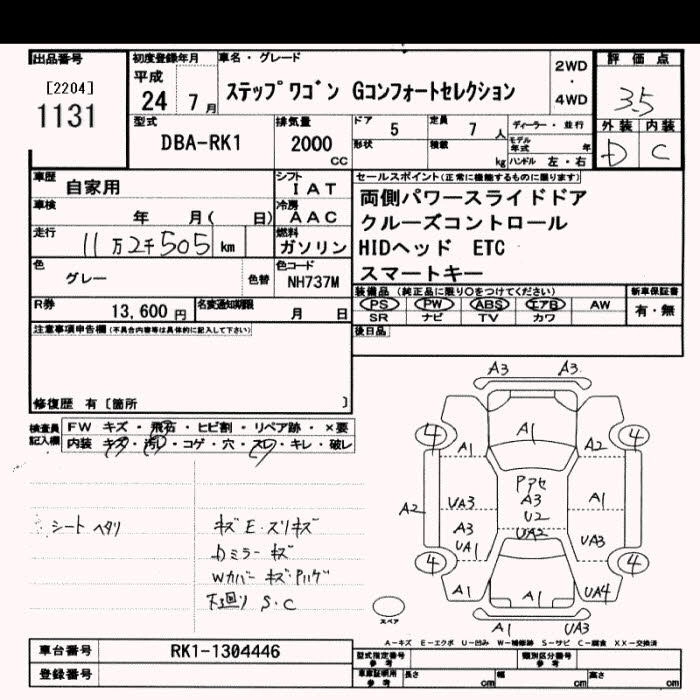 出品番号
[2204]
1131
初度登録年月
平成
24 7月
車名・グレード
ステップワゴン Gコンフォートセレクション
2WD
・
4WD
評価点
3.5
外装 内装
D C
型式
DBA-RK1
排気量
2000
CC
ドア 5
定員 7人
ディーラー・並行
形状
積載 kg
モデル年式 年
ハンドル 左・右
車歴 自家用
シフト IAT
車検 年 月( 日)
冷房 AAC
走行 11万2千505 km
燃料 ガソリン
色 グレー 色替
色コード NH737M
R券 13,600円
名変通知期限 月 日
セールスポイント(正常に機能するものに限ります)
両側パワースライドドア
クルーズコントロール
HIDヘッド ETC
スマートキー
装備品(純正品に限り○をつけてください)
PS PW ABS エアB AW
SR ナビ TV カワ
新車保証書
有・無
後日品
注意事項申告欄(不具合内容等は具体的に記入して下さい)
修復歴 有[箇所 ]
検査員記入欄
FW キズ・飛石・ヒビ割・リペア跡・×要
内装 キズ・汚レ・コゲ・穴・スレ・キレ・破レ
シート ヘタリ
キズ E・スリキズ
Dミラー キズ
Wカバー キズ・
下廻り S・C
A3 A3
4 A1 A1 A2 4
Pアセ
A2 UA3 A3 A1
A3 U2
UA1 UA2 UA3
4 4
A1 A1 UA4
A1 UA3
スペア
A-キズ E-エクボ U-凹み W-補修跡 S-サビ C-腐食 XX-交換済
車台番号 RK1-1304446
登録番号
型式指定番号
参考
類別区分番号
参考
車庫証明用
参考
長さ cm 幅 cm 高さ cm